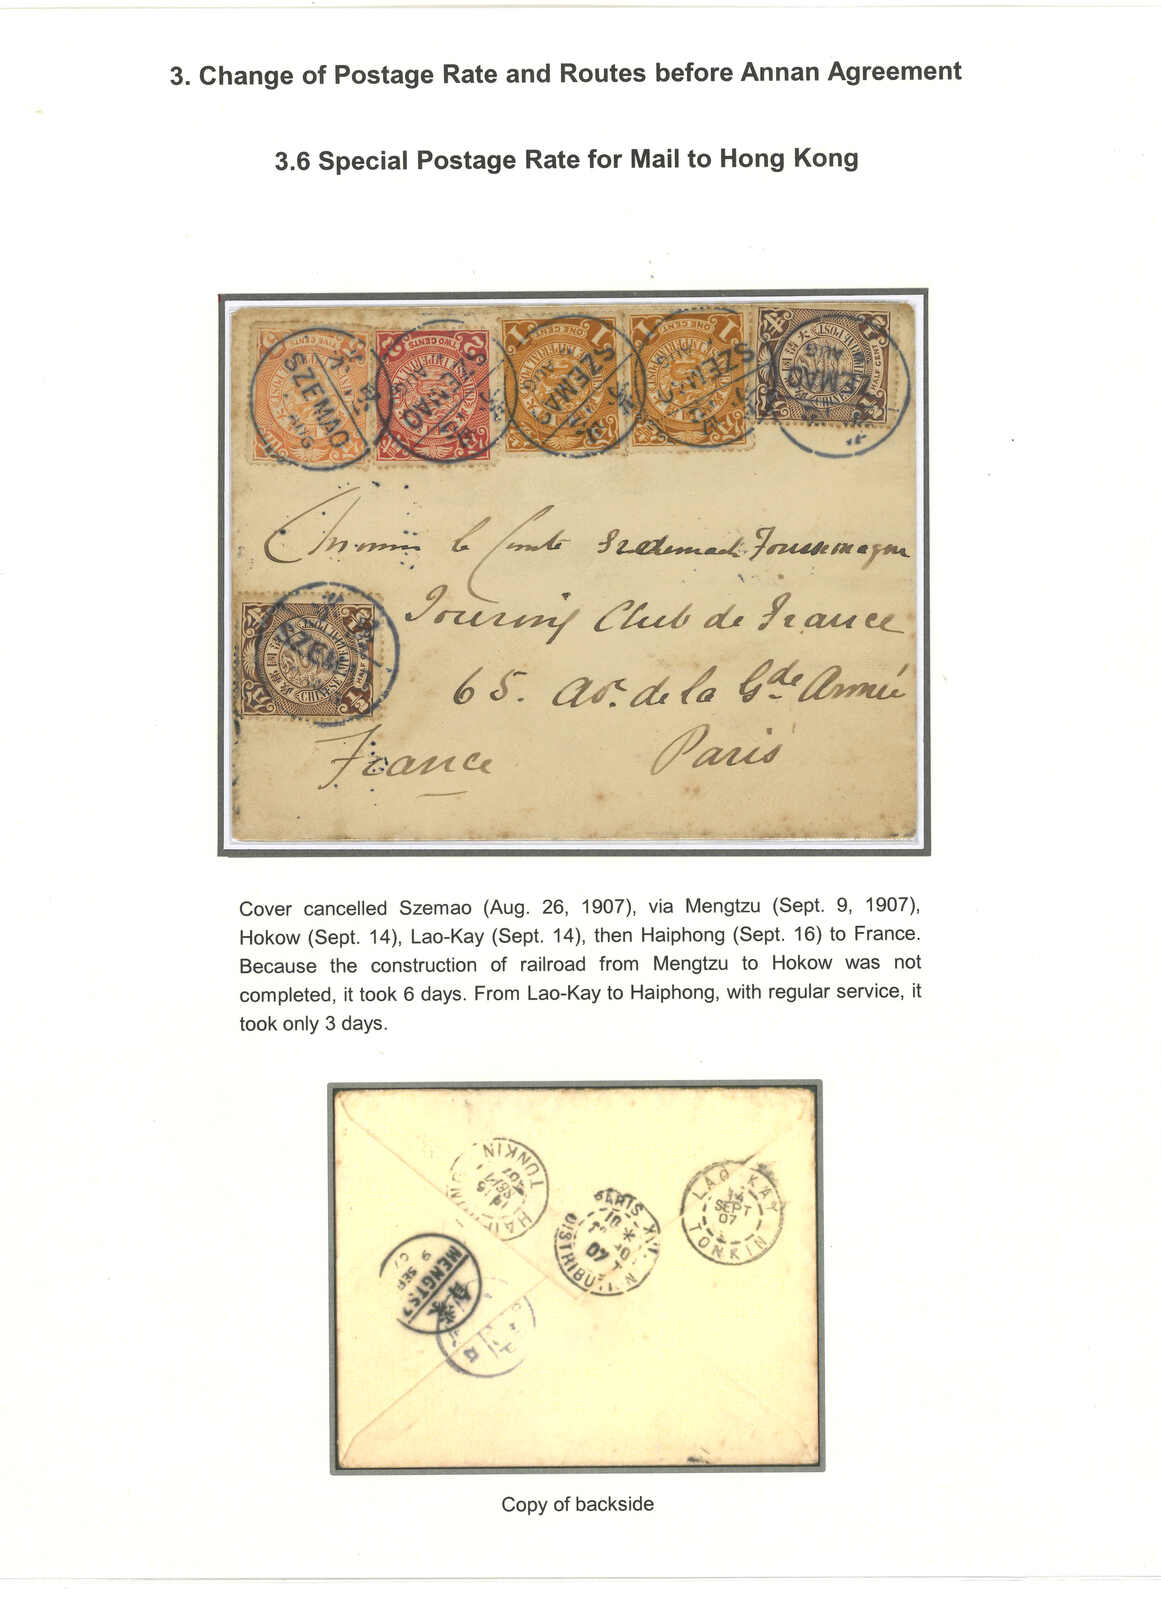 3. Change of Postage Rate and Routes before Annan Agreement
3.6 Special Postage Rate for Mail to Hong Kong
FIVE CENTS
2 TWO CENTS 2
1 ONE CENT 1
1 ONE CENT 1
HALF CENT
SZEMAO
AUG
SZEMAO
AUG
SZEMAO
AUG
SZEMAO
AUG
Monsieur le Comte
Touring Club de France
65. Av. de la Gde Armée
France Paris
CHINESE IMPERIAL POST
Cover cancelled Szemao (Aug. 26, 1907), via Mengtzu (Sept. 9, 1907),
Hokow (Sept. 14), Lao-Kay (Sept. 14), then Haiphong (Sept. 16) to France.
Because the construction of railroad from Mengtzu to Hokow was not
completed, it took 6 days. From Lao-Kay to Haiphong, with regular service, it
took only 3 days.
TONKIN
PARIS XVII
DISTRIBUTION
LAO-KAY
SEPT
07
TONKIN
MENGTSZ
9 SEP
07
蒙自
Copy of backside